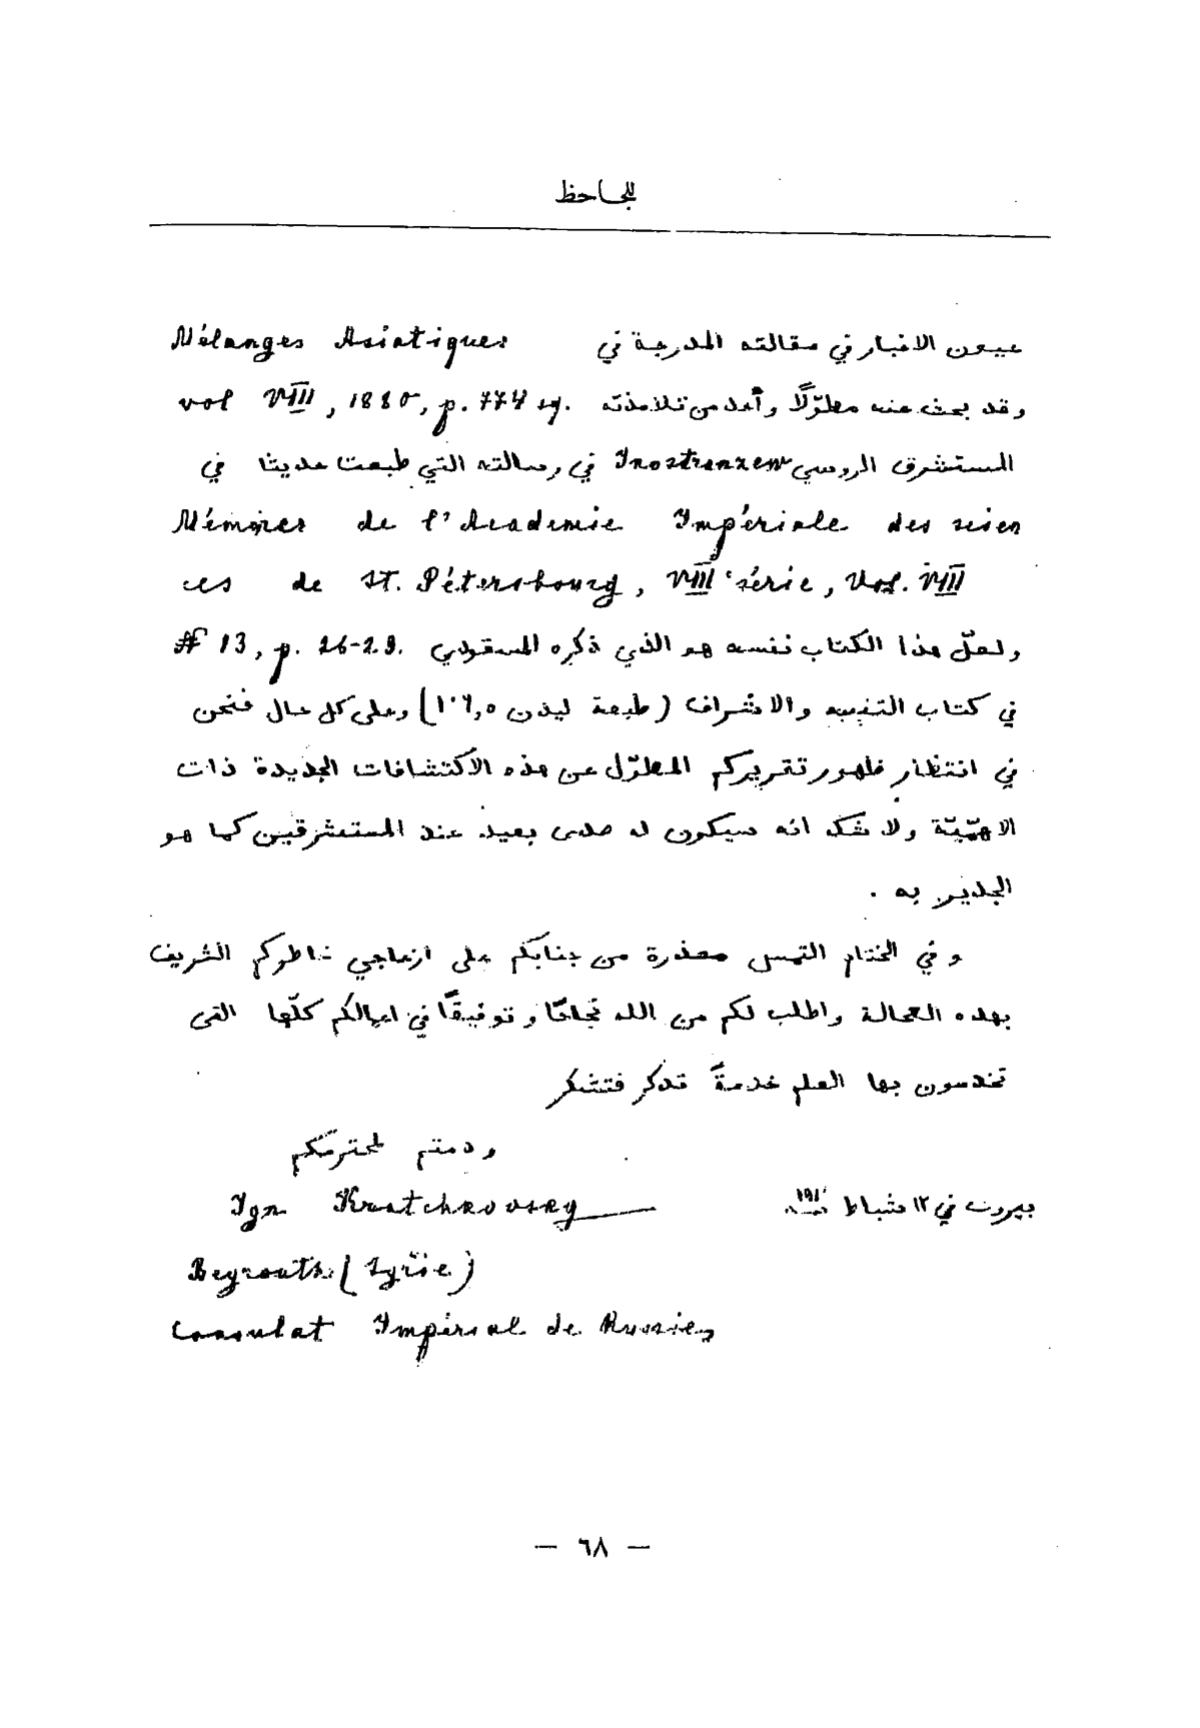 للجاحظ
عيون الاخبار في مقالته المدرجة في Mélanges Asiatiques
vol VIII, 1880, p. 774 sq. وقد بحث عنه مطوّلًا واحد من تلامذته
المستشرق الروسي Inostranzew في رسالته التي طبعت حديثا في
Mémoires de l'Academie Impériale des scien
ces de St. Pétersbourg, VIII série, Vol. VIII
№ 13, p. 26-29. ولعلّ هذا الكتاب نفسه هو الذي ذكره المسعودي
في كتاب التنبيه والاشراف (طبعة ليدن ص ١٠٦) وعلى كل حال فنحن
في انتظار ظهور تقريركم المطوّل عن هذه الاكتشافات الجديدة ذات
الاهمّيّة ولا شك انه سيكون له صدى بعيد عند المستشرقين كما هو
الجدير به .
وفي الختام التمس معذرة من جنابكم على ازعاجي خاطركم الشريف
بهذه العجالة واطلب لكم من الله نجاحًا وتوفيقًا في اعمالكم كلّها التى
تخدمون بها العلم خدمةً تذكر فتشكر
ودمتم لمحترمكم
بيروت في ١٢ شباط سنة ١٩١٠ Ign Kratchkovsky
Beyrouth (Syrie)
Consulat Impérial de Russie
— ٦٨ —